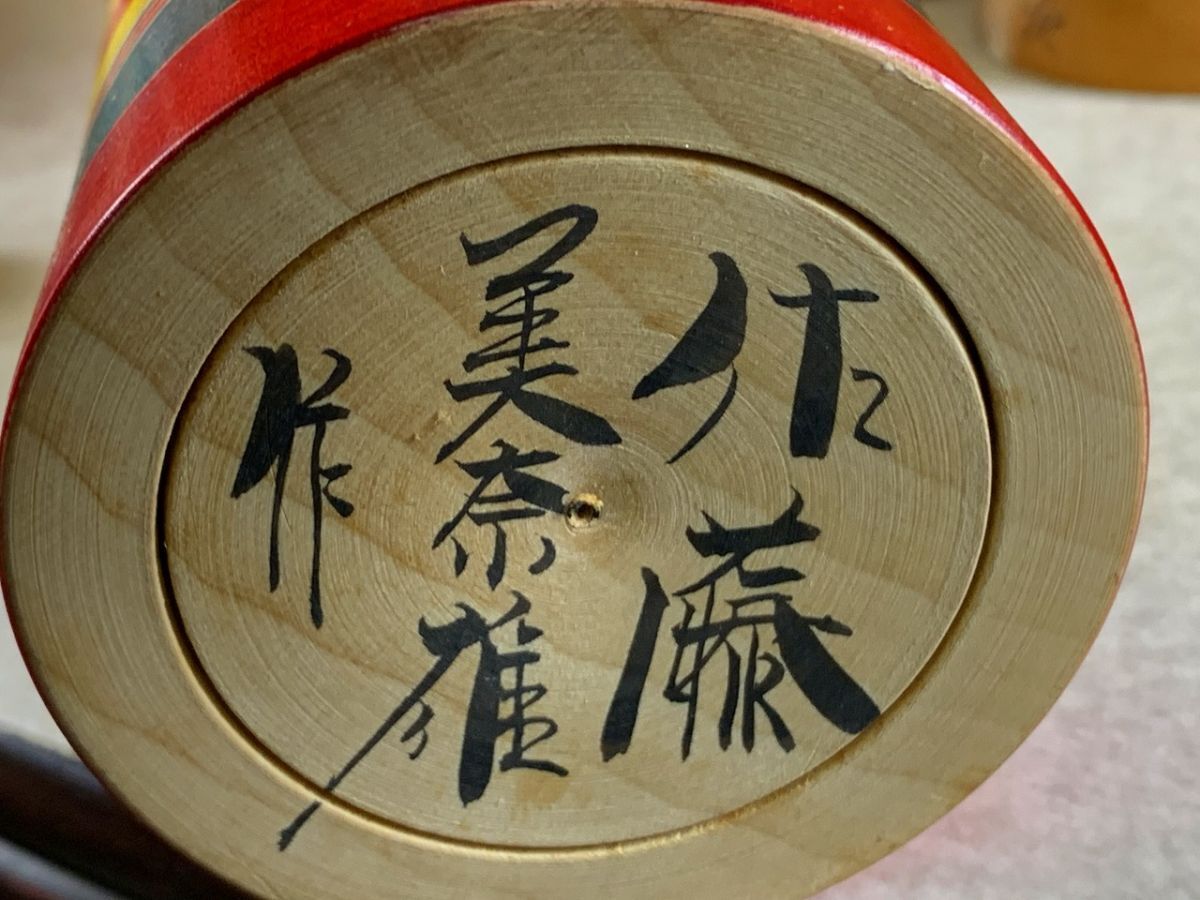 佐藤
美奈雄
作